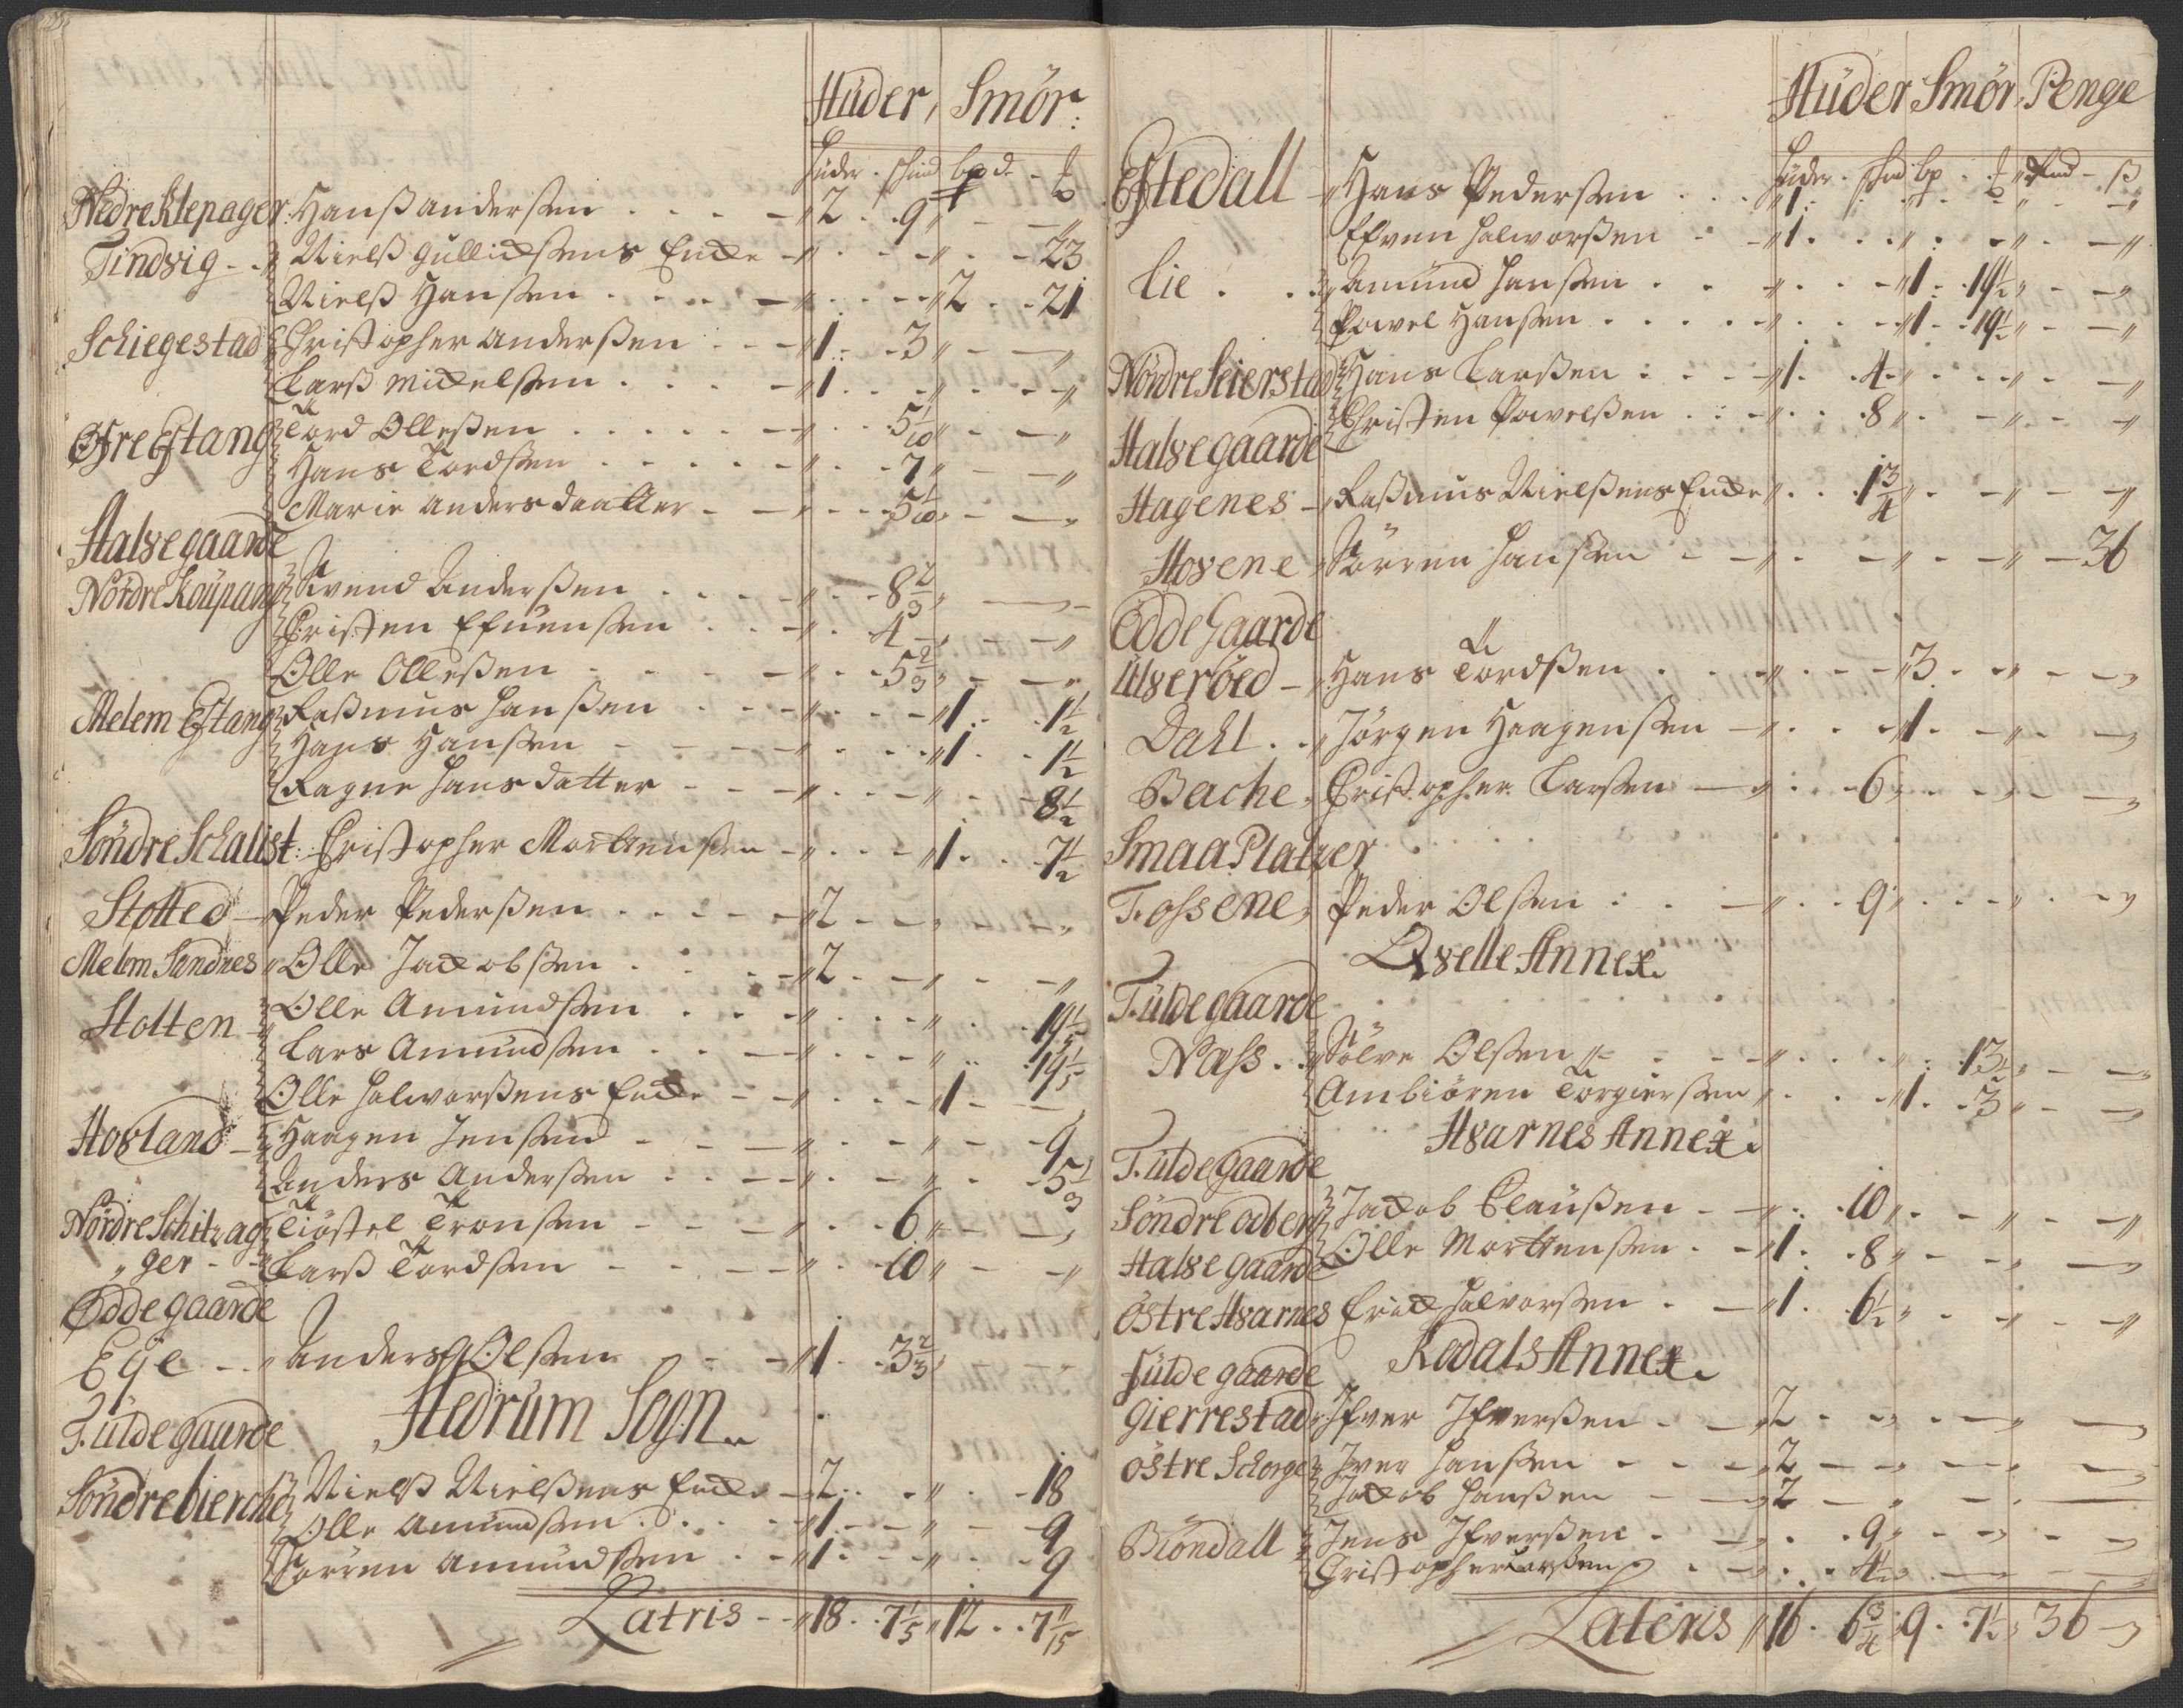 Huder, Smör:
Huder. skind bpd. - ℔
Nedre Klepager: Hanß anderßen - 2. 9
Tindvig - Nielß gullichsens Encke - 23
Nielß Hansen - 2 - 21
Schiegestad Christopher anderßen - 1 - 3
Larß Mickelsen - 1
Øfre Eftang Tord Olleßen - 5 1/10
Hans Tordsen - 7
Marie andersdaatter - 5 1/10
Halvegaarde
Nördre Kaupang Svend Anderßen - 8 2/3
Christen Efuensen - 4
Olle Olleßen - 5 2/3
Melem Eftang Raßmus Hanßen - 1 - 1 1/2
Hans Hansen - 1 - 1 1/2
Ragne Hansdatter - 8 1/2
Söndre Schalist: Christopher Mortensen - 1 - 7 1/2
Stotted - Peder Pederßen - 2
Melem Sandnes Olle Jacobßen - 2
Holten Olle Amundsen - 19 1/5
Lars Amundsen - 19 1/5
Olle Halvorßens Encke - 1
Hovland - Haagen Jensen - 9
Anders Andersen - 5 1/3
Nördre Schitzag Tiöstel Tronsen - 6
ger - Larß Tordsen - 10
Ödde gaarde
Eije - Anders Olsen - 1 - 3 2/3
Hedrum Sogn
Fulde gaarde
Söndre bierche Nielß Nielßens Encke - 2 - 18
Olle Amundsen - 1 - 9
Sören Amundsen - 1 - 9
Latris - 18 - 7 1/5 12 - 7 11/15
Huder Smör, Penge
Huder. skind bp. ℔ ß
Eftedall - Hans Pedersen - 1
Efven Halvorßen - 1
Lie . . Amund Hansen - 1 - 19 1/2
Powel Hansen - 1 - 19 1/2
Nördre Seierstad Hans Larßen - 1 - 4
Christen Powelßen - 8
Halvegaarde
Hagenes - Raßmus Nielßens Encke - 1 3/4
Hovene Sörren Hansen - 36
Ödde Gaarde
Ulveröed - Hans Tordßen - 3
Dahl . . Jörgen Haagensen - 1
Bache, Christopher Larsen - 6
Smaa Platzer
Fossene, Peder Olsen - 9
Qvelle Annex.
Fulde gaarde
Næss . . Sölve Olsen - 13 1/2
Ambiören Torgiersen - 1 - 3
Hvarnes Annex.
Fulde gaarde
Söndre odberg Jacob Claußen - 10
Halve gaarde Olle Mortensen - 1 - 8
östre Hvarnes Erich Halvorsen - 1 - 6 1/2
Kodals Annex.
Fulde gaarde
Gierrestad, Ifver Ifverßen - 2
östre Schorge Iver Hanßen - 2
Jacob Hanßen - 2
Biöndall Jens Ifverßen - 9
Christopher Larßen - 4 1/2
Lateris 16 - 6 3/4 9 - 7 1/2 36